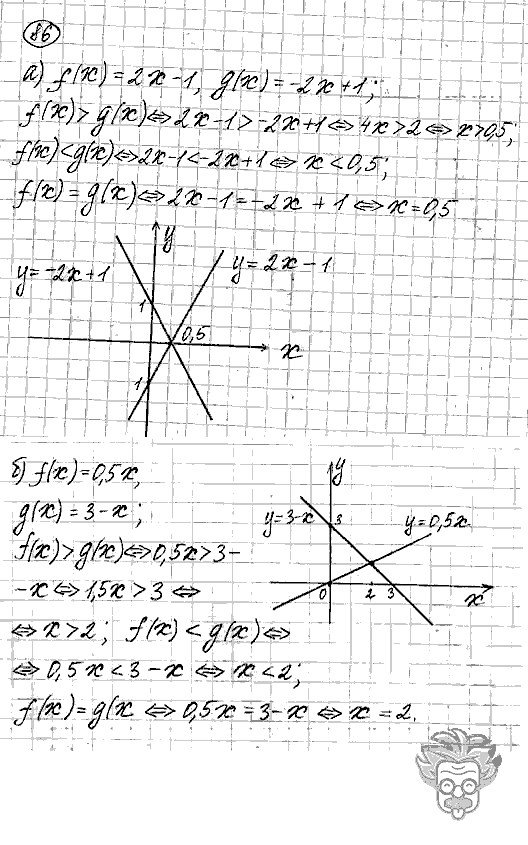 86
а) f(x) = 2x-1, g(x) = -2x+1;
f(x) > g(x) ⇔ 2x-1 > -2x+1 ⇔ 4x > 2 ⇔ x > 0,5;
f(x) < g(x) ⇔ 2x-1 < -2x+1 ⇔ x < 0,5;
f(x) = g(x) ⇔ 2x-1 = -2x + 1 ⇔ x = 0,5
y
y = -2x+1
y = 2x-1
1
0,5
x
1
б) f(x) = 0,5x,
g(x) = 3-x;
f(x) > g(x) ⇔ 0,5x > 3-
-x ⇔ 1,5x > 3 ⇔
⇔ x > 2; f(x) < g(x) ⇔
⇔ 0,5x < 3-x ⇔ x < 2;
f(x) = g(x ⇔ 0,5x = 3-x ⇔ x = 2.
y
y = 3-x
3
y = 0,5x
0
2
3
x